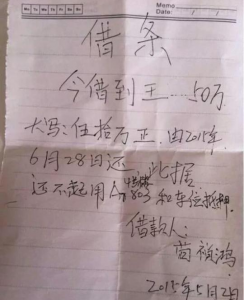 Memo
Mo Tu We Th Fr Sa Su
Date: / /
借条
今借到王 50万
大写:伍拾万正 由2015年
6月28日还 此据
还不起用 803和车位抵押
借款人:
茵祯鸿
2015年5月2日